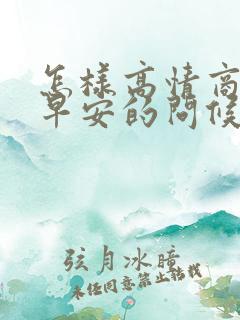 怎样高情商
早安的问候
弦月冰瞳
未经同意禁止转载